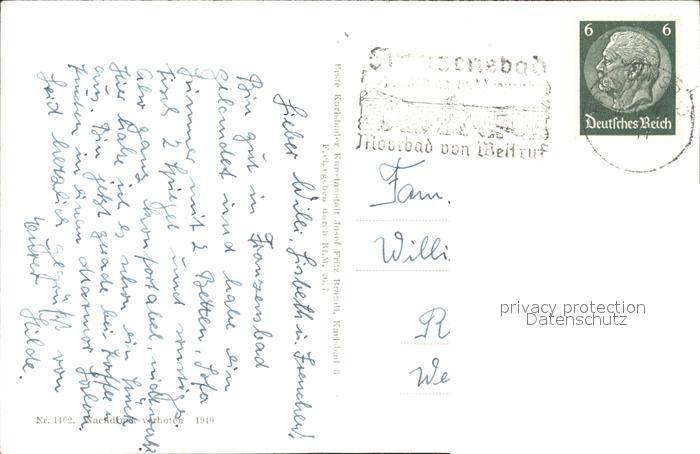 Lieber Willi, Lisbeth u. Frenchen!
Bin gut in Franzensbad
gelandet und habe ein
Zimmer mit 2 Betten, Sofa
Tisch 2 Spiegel und sonstiges.
also ganz komfortabel,
Hier habe ich es schon ein
aus. Bin jetzt gerade bei Kaffee u.
Kuchen in einem Marmor Salon.
Seid herzlich gegrüßt von
Eurer Hilde.
Nr. 1402. Nachdruck verboten 1940
Erste Karlsbader Kunstanstalt Josef Fritz Brandl, Karlsbad 5
Freigegeben durch RLM.
Franzensbad
Moorbad von Weltruf
6 6
Deutsches Reich
Fam.
Willi
R
We
privacy protection
Datenschutz